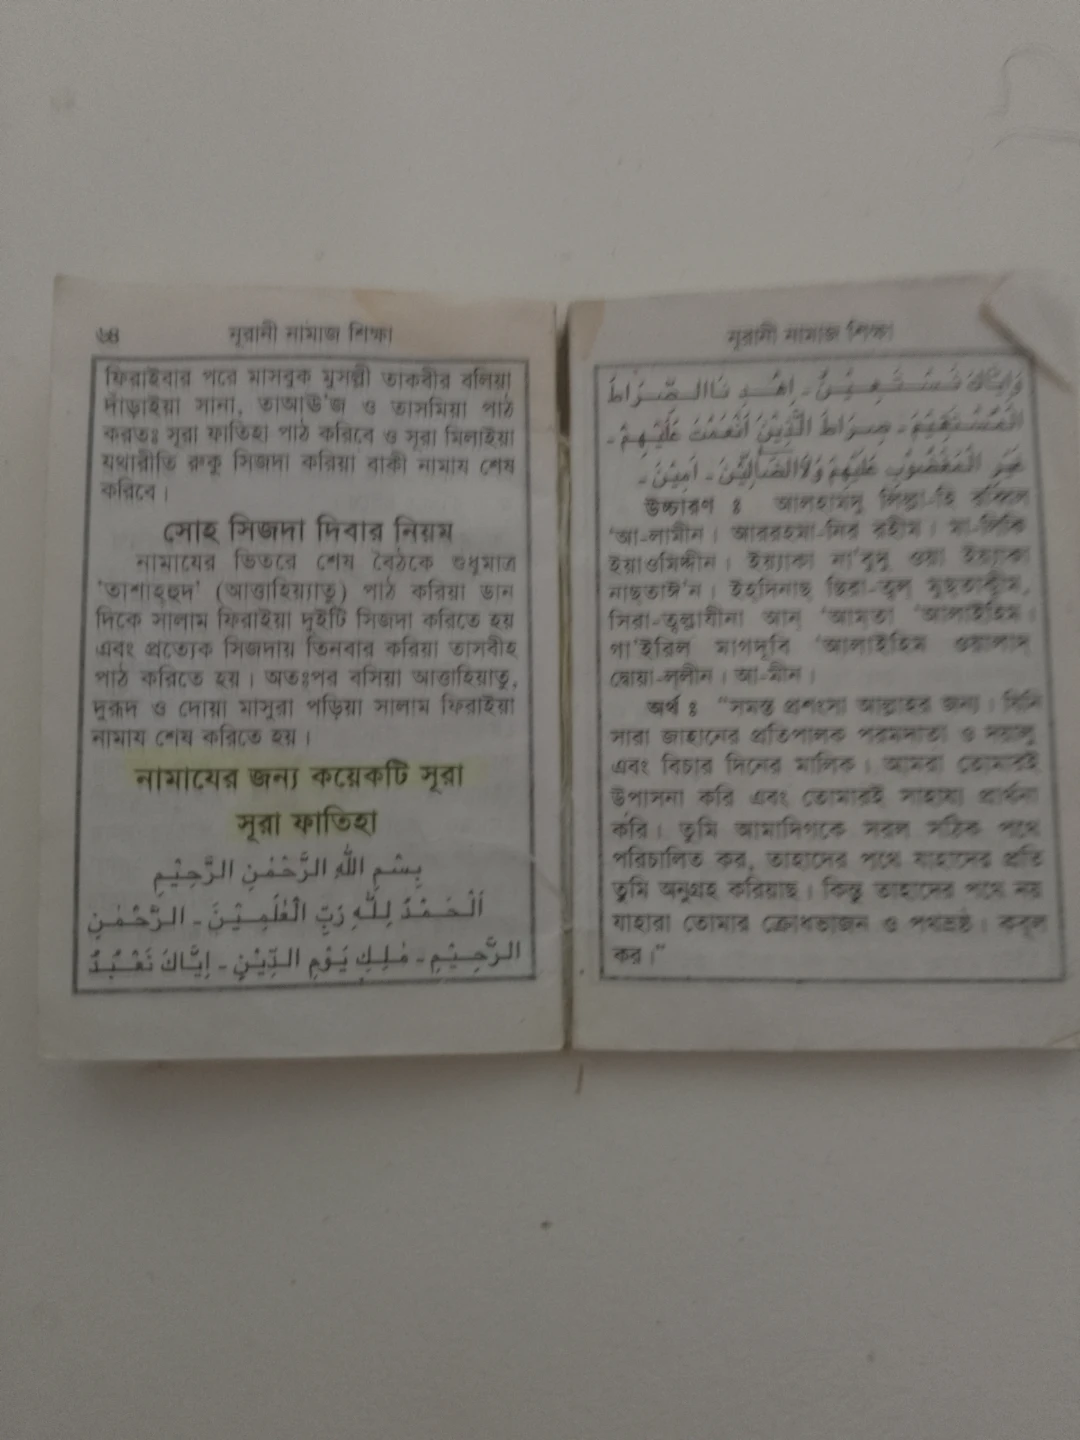 ৬৪
নূরানী নামাজ শিক্ষা
ফিরাইবার পরে মাসবুক মুসল্লী তাকবীর বলিয়া
দাঁড়াইয়া সানা, তাআউ'জ ও তাসমিয়া পাঠ
করতঃ সূরা ফাতিহা পাঠ করিবে ও সূরা মিলাইয়া
যথারীতি রুকু সিজদা করিয়া বাকী নামায শেষ
করিবে।
সোহ সিজদা দিবার নিয়ম
নামাযের ভিতরে শেষ বৈঠকে শুধুমাত্র
'তাশাহহুদ' (আত্তাহিয়্যাতু) পাঠ করিয়া ডান
দিকে সালাম ফিরাইয়া দুইটি সিজদা করিতে হয়
এবং প্রত্যেক সিজদায় তিনবার করিয়া তাসবীহ
পাঠ করিতে হয়। অতঃপর বসিয়া আত্তাহিয়াতু,
দুরূদ ও দোয়া মাসুরা পড়িয়া সালাম ফিরাইয়া
নামায শেষ করিতে হয়।
নামাযের জন্য কয়েকটি সূরা
সূরা ফাতিহা
بِسْمِ اللهِ الرَّحْمٰنِ الرَّحِيْمِ
اَلْحَمْدُ لِلّٰهِ رَبِّ الْعٰلَمِيْنَ - الرَّحْمٰنِ
الرَّحِيْمِ - مٰلِكِ يَوْمِ الدِّيْنِ - اِيَّاكَ نَعْبُدُ
নূরানী নামাজ শিক্ষা
وَاِيَّاكَ نَسْتَعِيْنُ - اِهْدِ نَاالصِّرَاطَ
الْمُسْتَقِيْمَ - صِرَاطَ الَّذِيْنَ اَنْعَمْتَ عَلَيْهِمْ -
غَيْرِ الْمَغْضُوْبِ عَلَيْهِمْ وَلَاالضَّالِّيْنَ - اٰمِيْنَ -
উচ্চারণ ঃ আলহামদু লিল্লা-হি রব্বিল
'আ-লামীন। আররহমা-নির রহীম। মা-লিকি
ইয়াওমিদ্দীন। ইয়্যাকা না'বুদু ওয়া ইয়্যাকা
নাছতাঈ'ন। ইহদিনাছ ছিরা-ত্বল মুছতাক্বীম,
সিরা-ত্বল্লাযীনা আন্ 'আমতা 'আলাইহিম।
গা'ইরিল মাগদূবি 'আলাইহিম ওয়ালাদ্
দ্বোয়া-ললীন। আ-মীন।
অর্থ ঃ "সমস্ত প্রশংসা আল্লাহর জন্য। যিনি
সারা জাহানের প্রতিপালক পরমদাতা ও দয়ালু
এবং বিচার দিনের মালিক। আমরা তোমারই
উপাসনা করি এবং তোমারই সাহায্য প্রার্থনা
করি। তুমি আমাদিগকে সরল সঠিক পথে
পরিচালিত কর, তাহাদের পথে যাহাদের প্রতি
তুমি অনুগ্রহ করিয়াছ। কিন্তু তাহাদের পথে নয়
যাহারা তোমার ক্রোধভাজন ও পথভ্রষ্ট। কবুল
কর।"